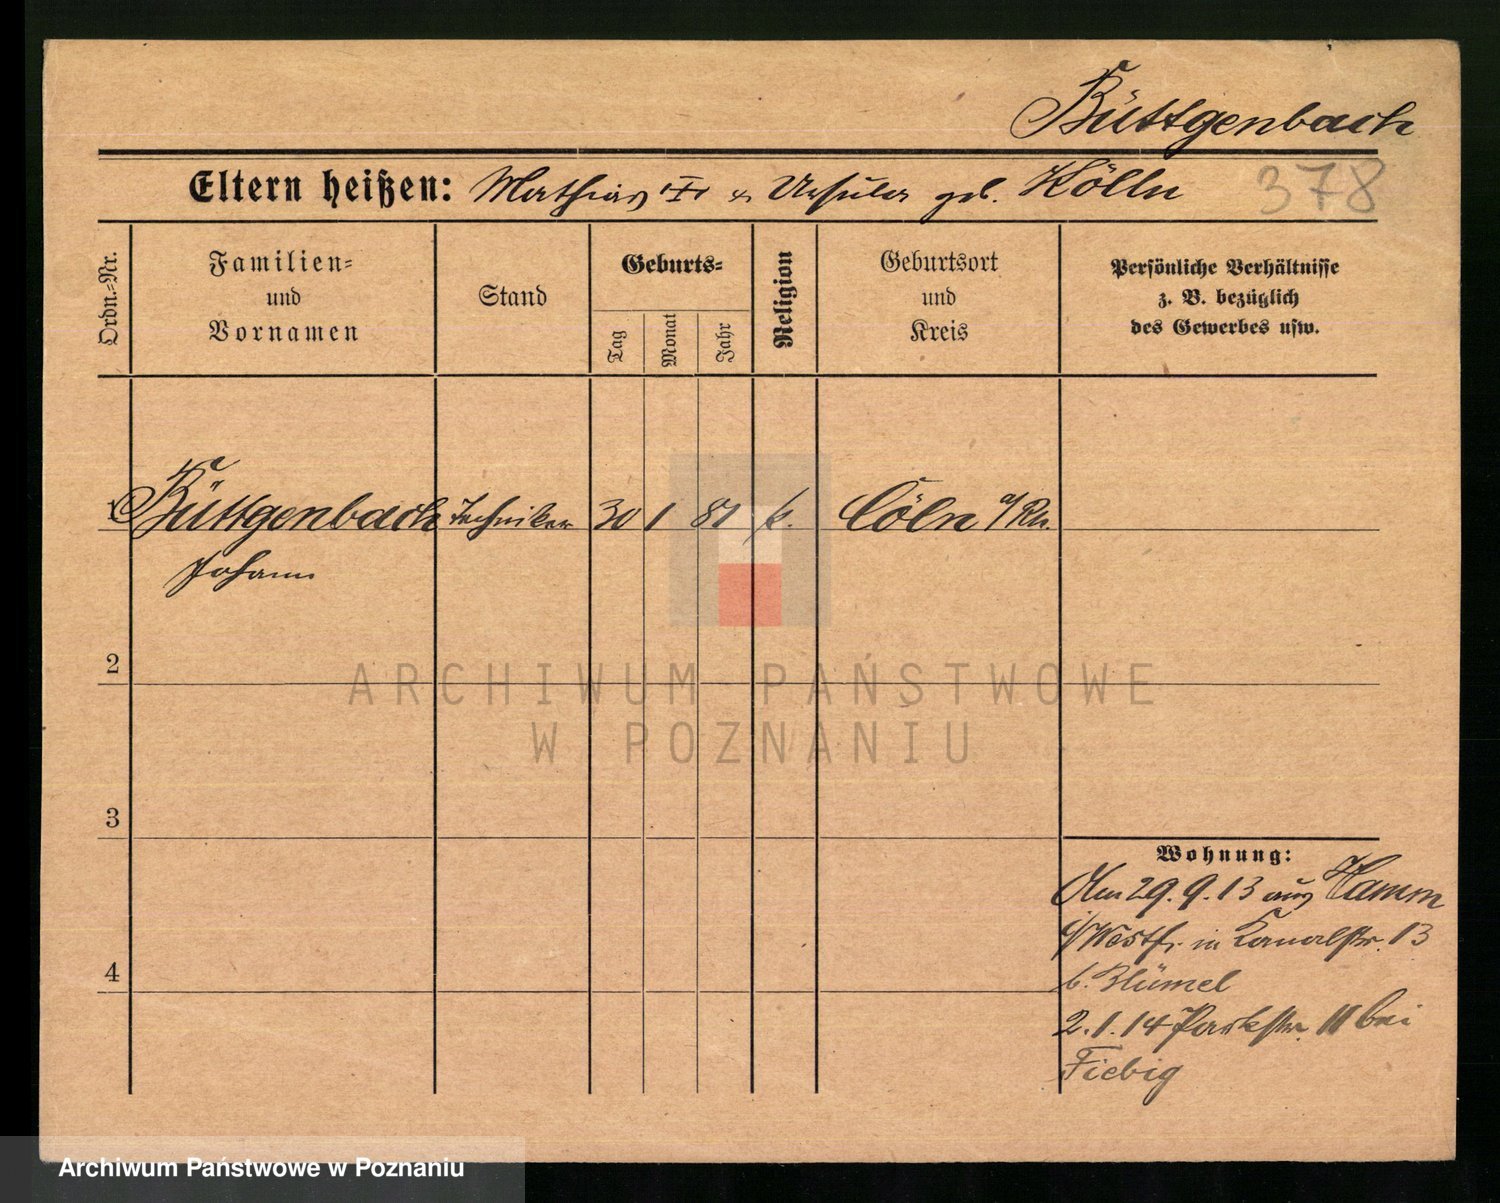 Büttgenbach
Eltern heißen: Mathias III u. Ursula geb. Kölln
378
Ordn.-Nr.
Familien-
und
Vornamen
Stand
Geburts-
Tag
Monat
Jahr
Religion
Geburtsort
und
Kreis
Persönliche Verhältnisse
z. B. bezüglich
des Gewerbes usw.
1 Büttgenbach Techniker 30 1 81 k. Cöln a/Rh.
Johann
2
ARCHIWUM PAŃSTWOWE
W POZNANIU
3
Wohnung:
Am 29.9.13 aus Hamm
i/Westf. in Kanalstr. 13
b. Blümel
4
2.1.14 Parkstr. 11 bei
Fiebig
Archiwum Państwowe w Poznaniu